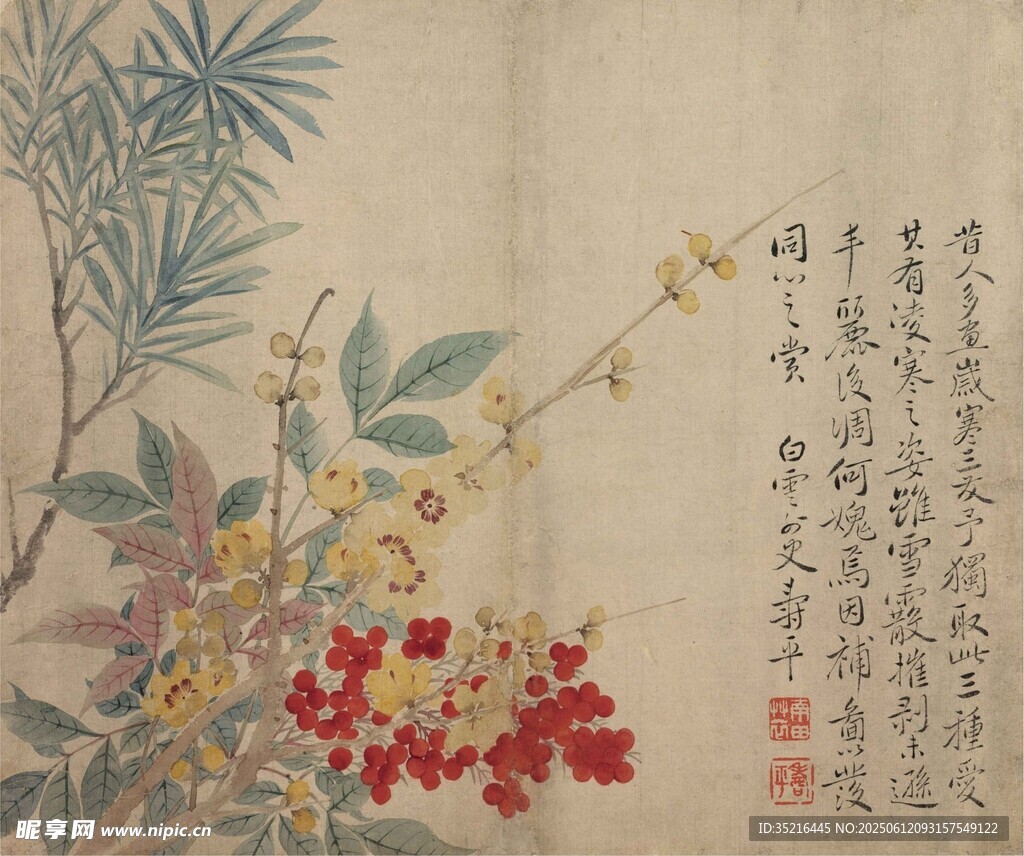 昔人多畫歲寒三友予獨取此三種愛
其有凌寒之姿雖雪霰摧剥未遜
丰麗後凋何媿焉因補圖以發
同心之賞
白雲外史壽平
南田草衣
壽平
昵享网 www.nipic.cn
ID:35216445 NO:20250612093157549122